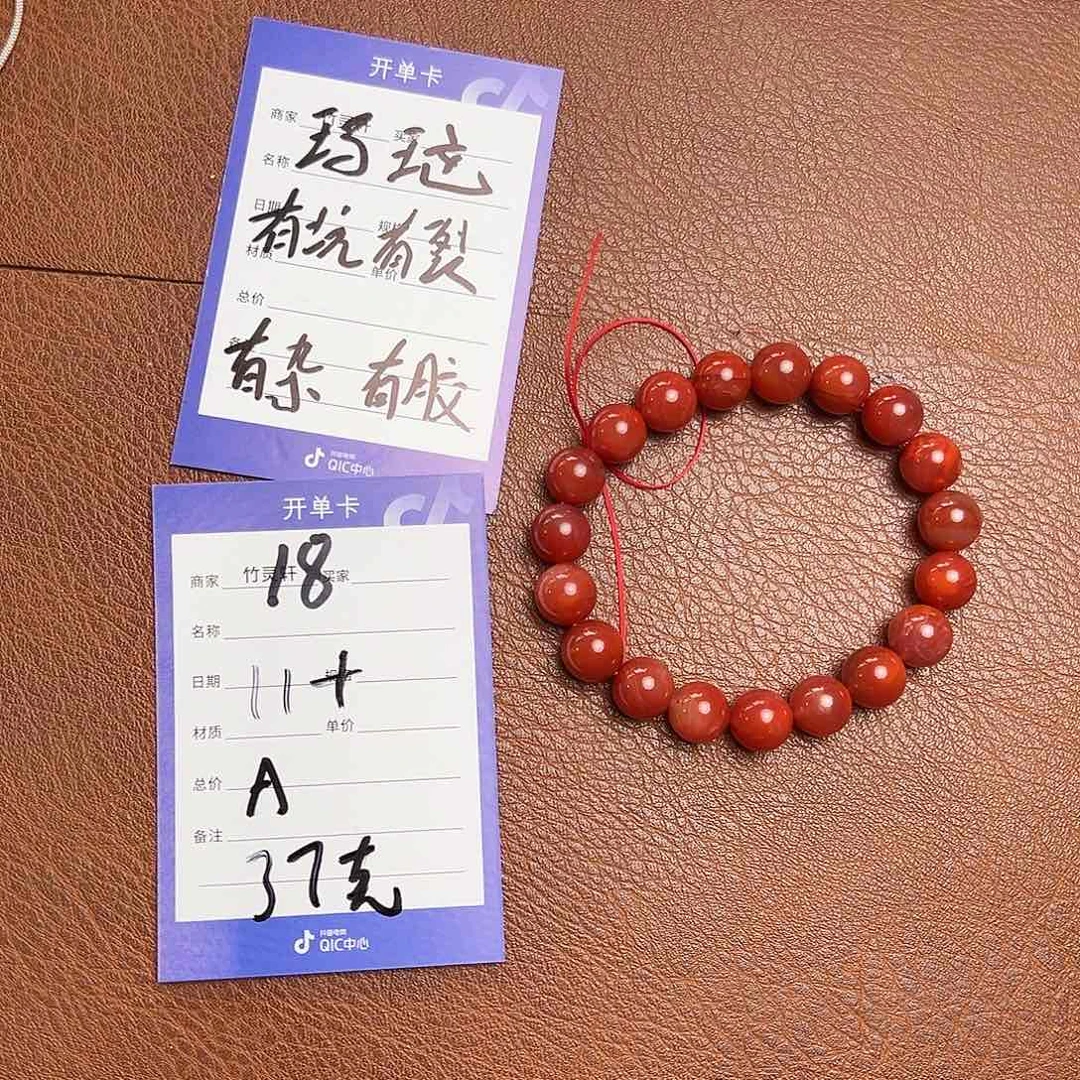 开单卡
商家 竹灵轩 买家
玛瑙
名称
日期
有坑 有裂
材质 单价
总价
有杂 有胶
抖音电商
QIC中心
开单卡
18
商家 竹灵轩 买家
名称
日期 11+
材质 单价
总价 A
备注
37克
抖音电商
QIC中心